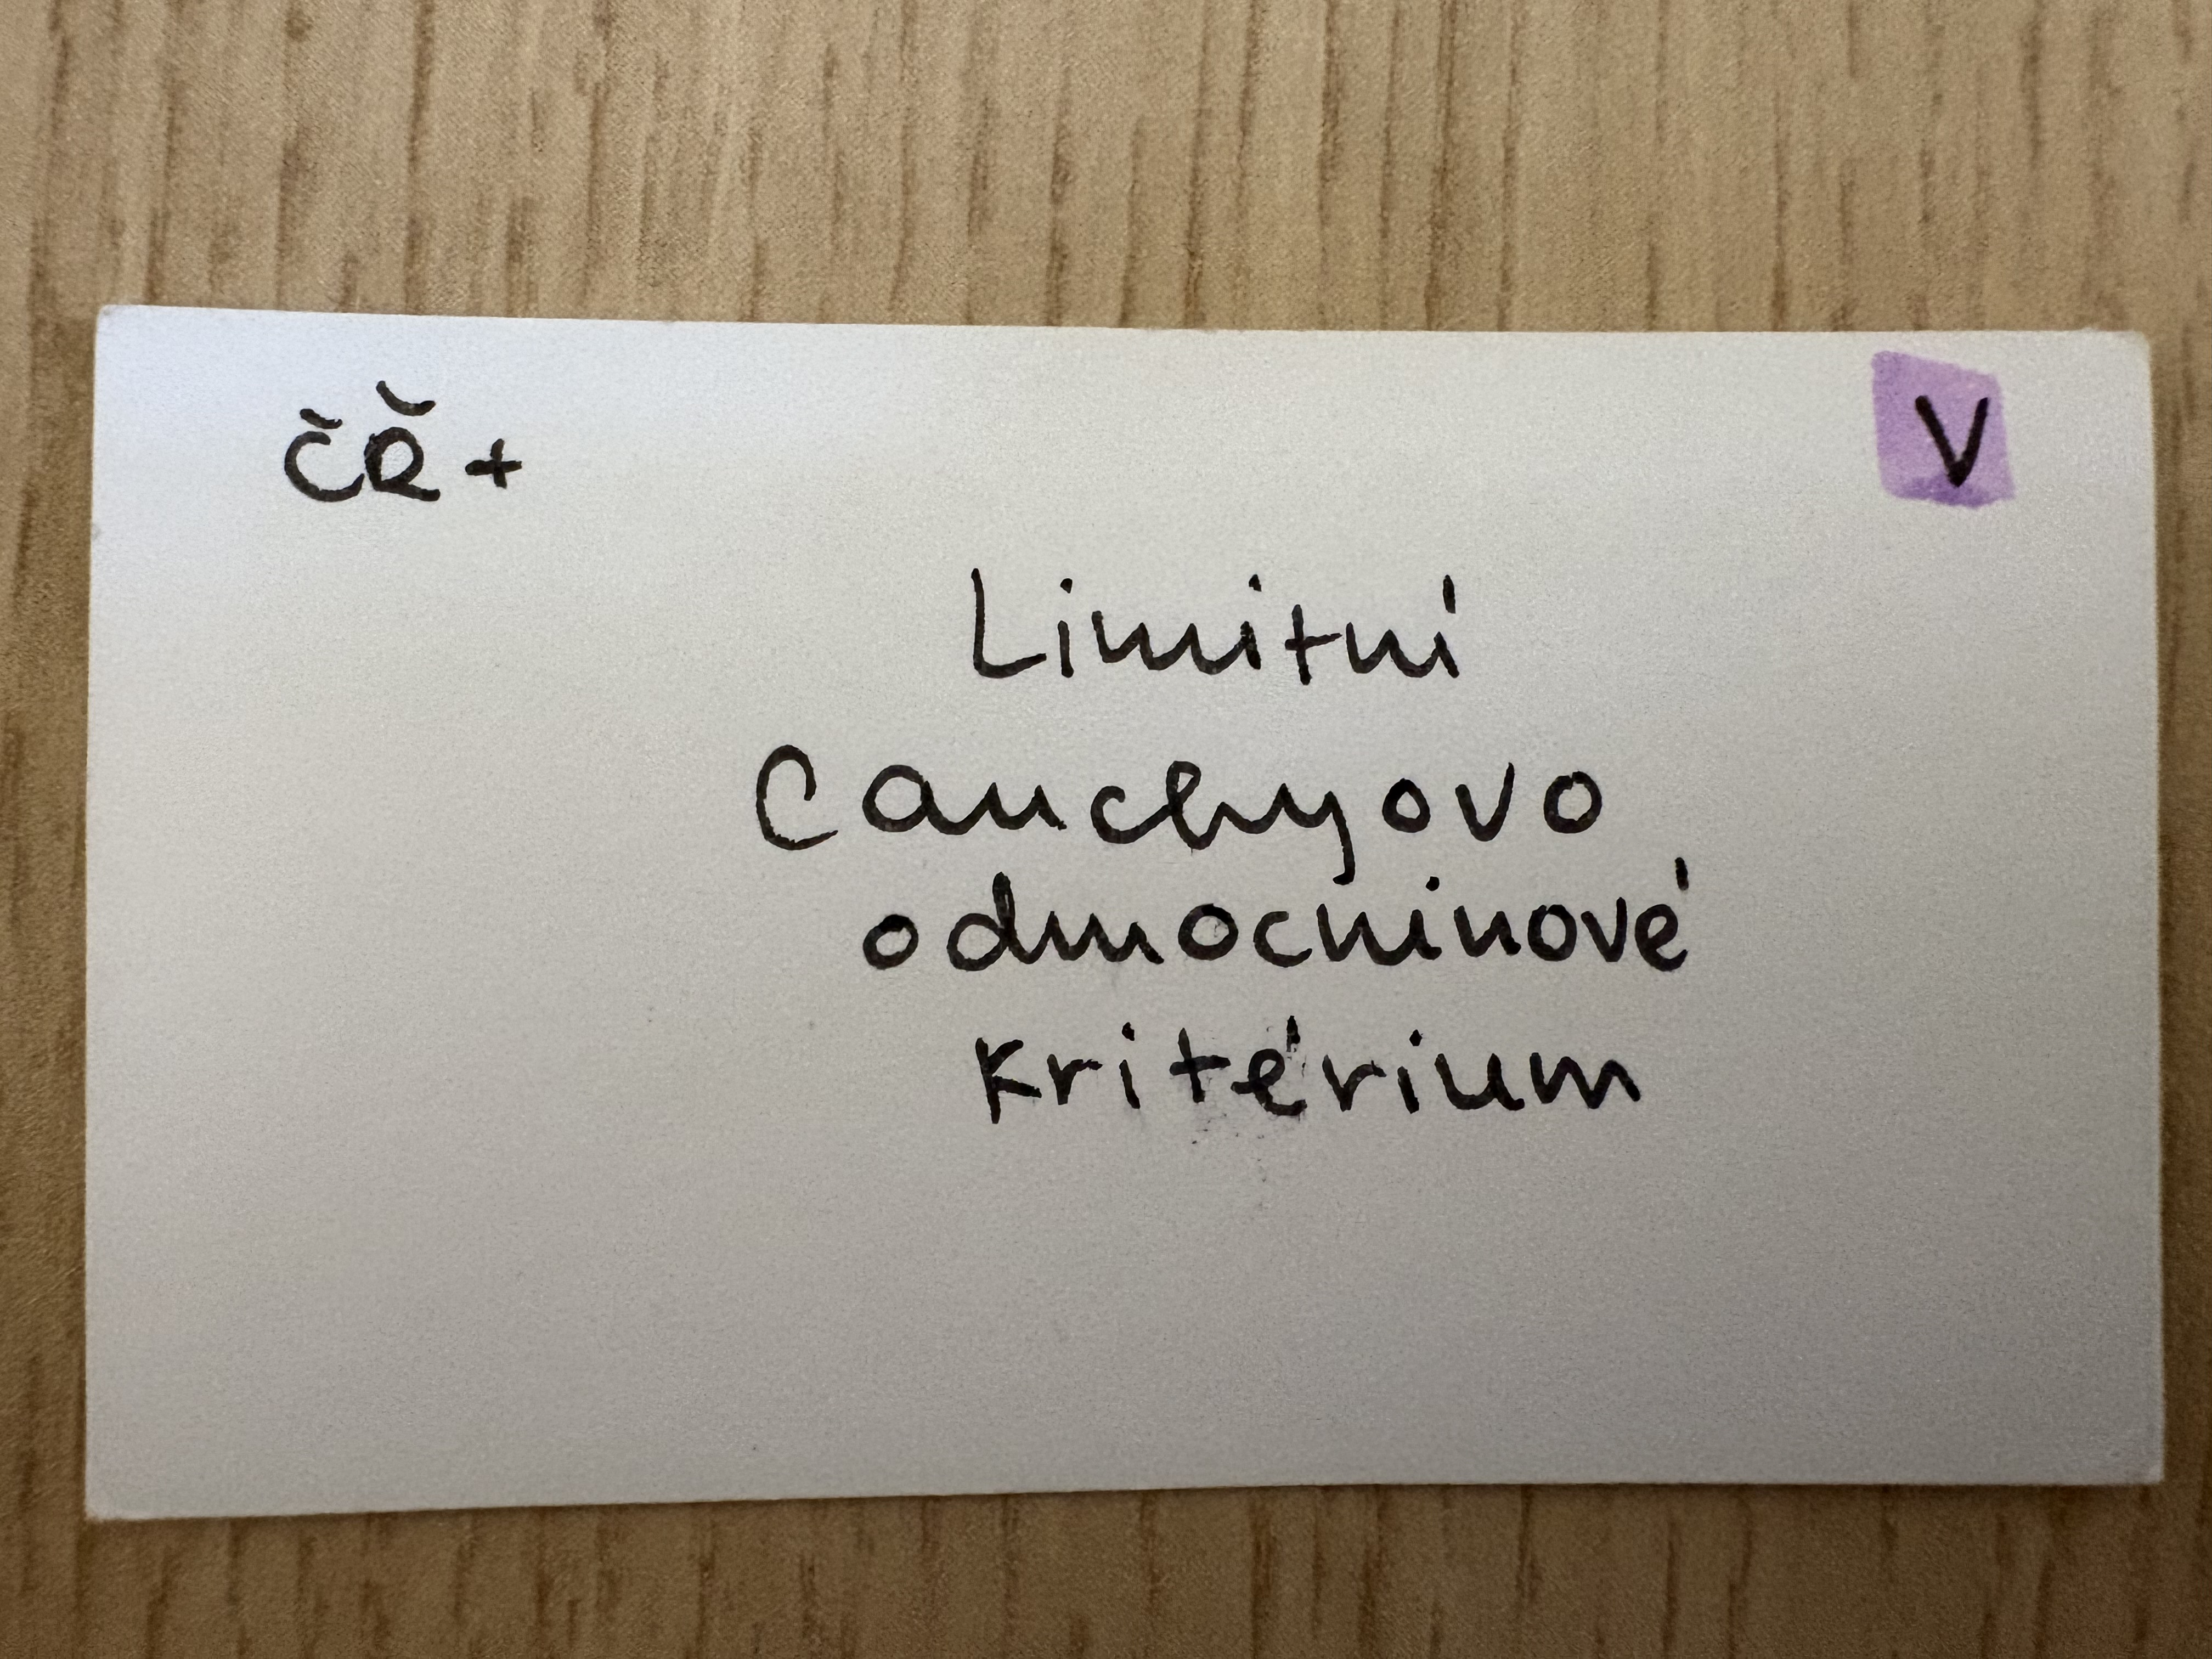 ČŘ+
V
Limitní
Cauchyovo
odmocninové
kritérium